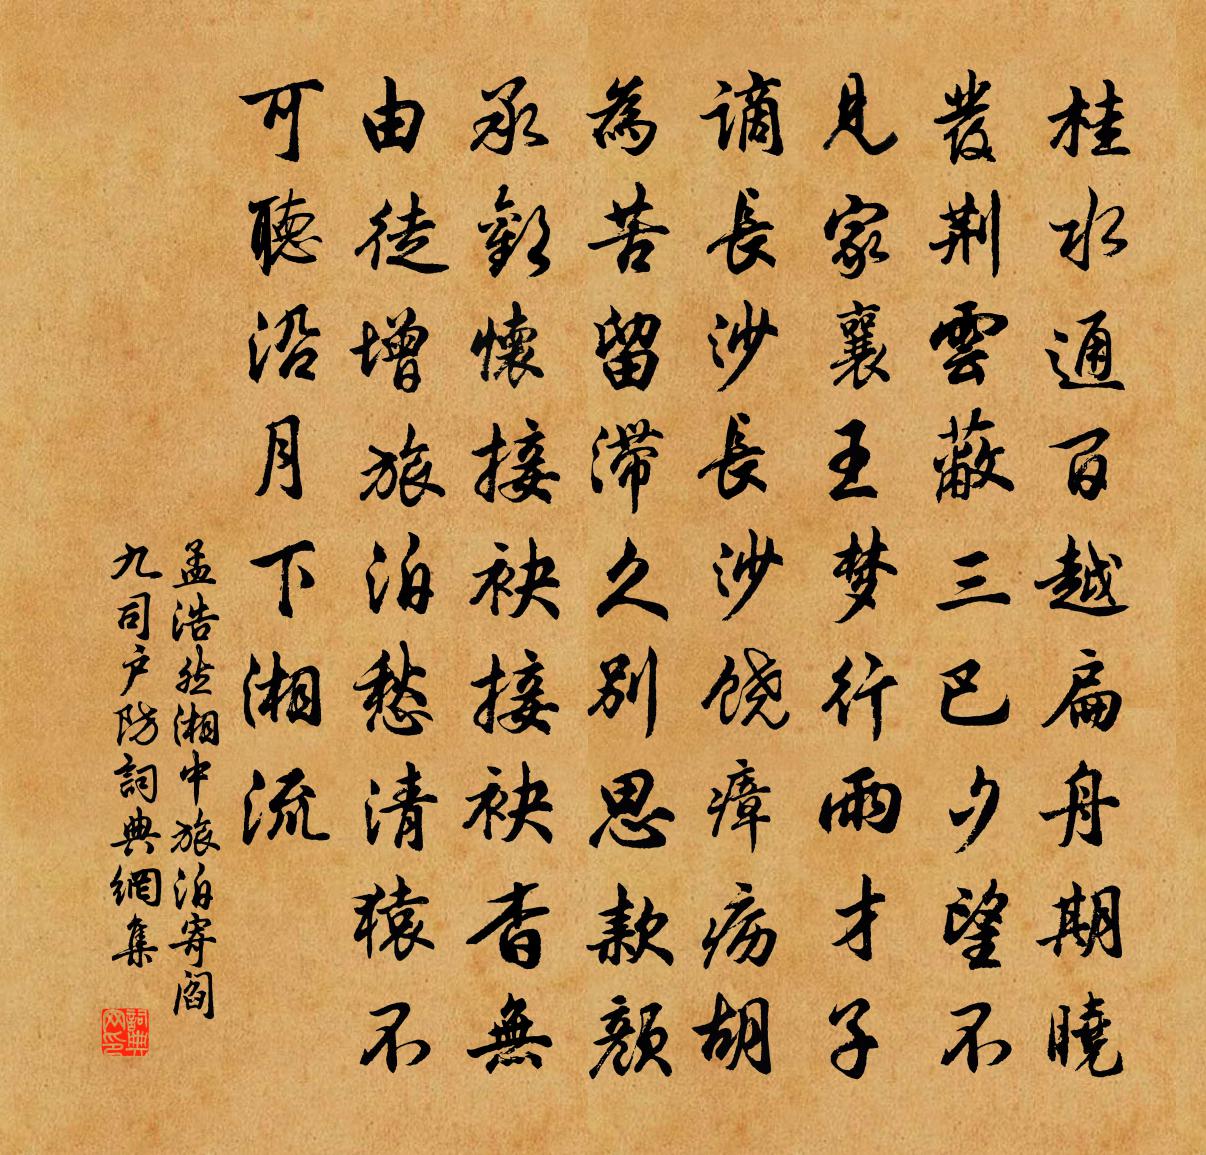 桂水通百越扁舟期曉
發荆雲蔽三巴夕望不
見家襄王梦行雨才子
謫長沙長沙饶瘴疠胡
為苦留滞久别思款顔
承歡懷接袂接袂杳無
由徒增旅泊愁清猿不
可聽沿月下湘流
孟浩然湘中旅泊寄阎
九司户防詞典網集
詞典網印